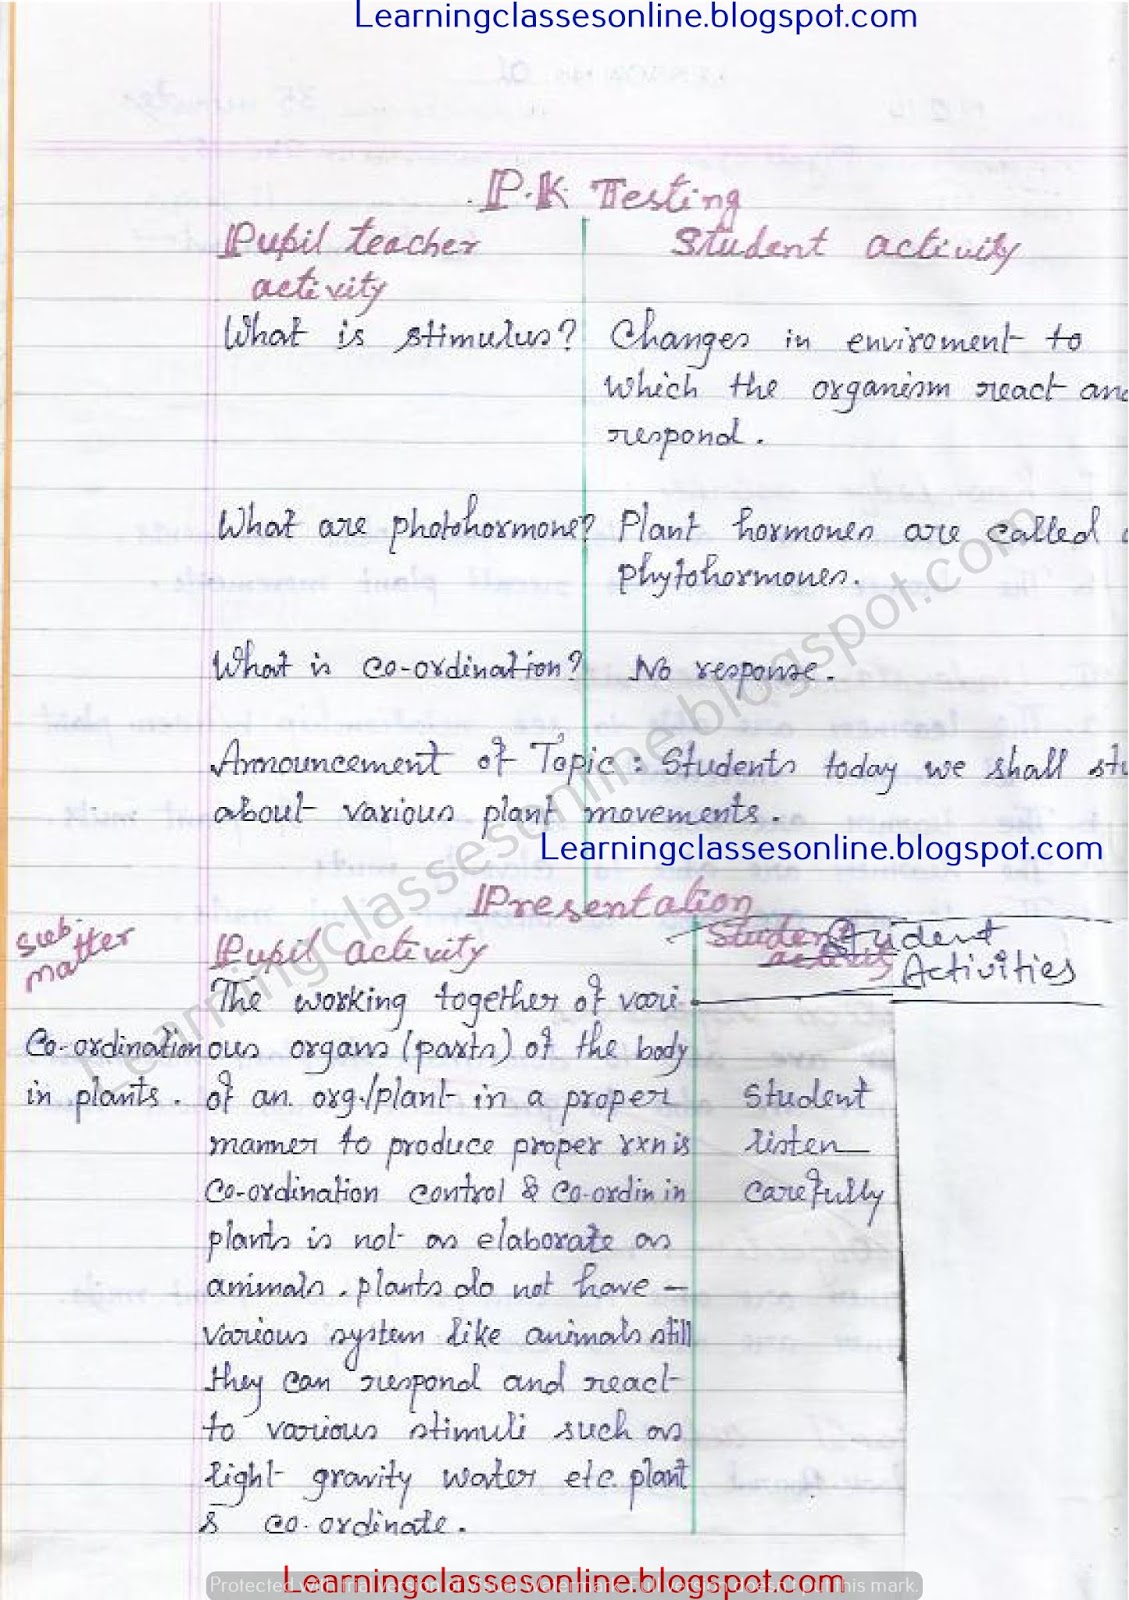 Learningclassesonline.blogspot.com
P.K. Testing
Pupil teacher activity
Student activity
What is stimulus?
Changes in enviroment to
which the organism react and
respond.
What are photohormone?
Plant hormones are called
phytohormones.
What is co-ordination?
No response.
Announcement of Topic : Students today we shall
about various plant movements.
Learningclassesonline.blogspot.com
Presentation
Sub matter
Pupil activity
Student activity
Student Activities
Co-ordination
in plants.
The working together of vari-
ous organs (parts) of the body
of an org./plant in a proper
manner to produce proper rxn is
co-ordination control & co-ordin in
plants is not as elaborate as
animals. plants do not have -
various system like animals still
they can respond and react
to various stimuli such as
light gravity water etc. plant
s co-ordinate.
Student
listen
carefully
Learningclassesonline.blogspot.com
Learningclassesonline.blogspot.com